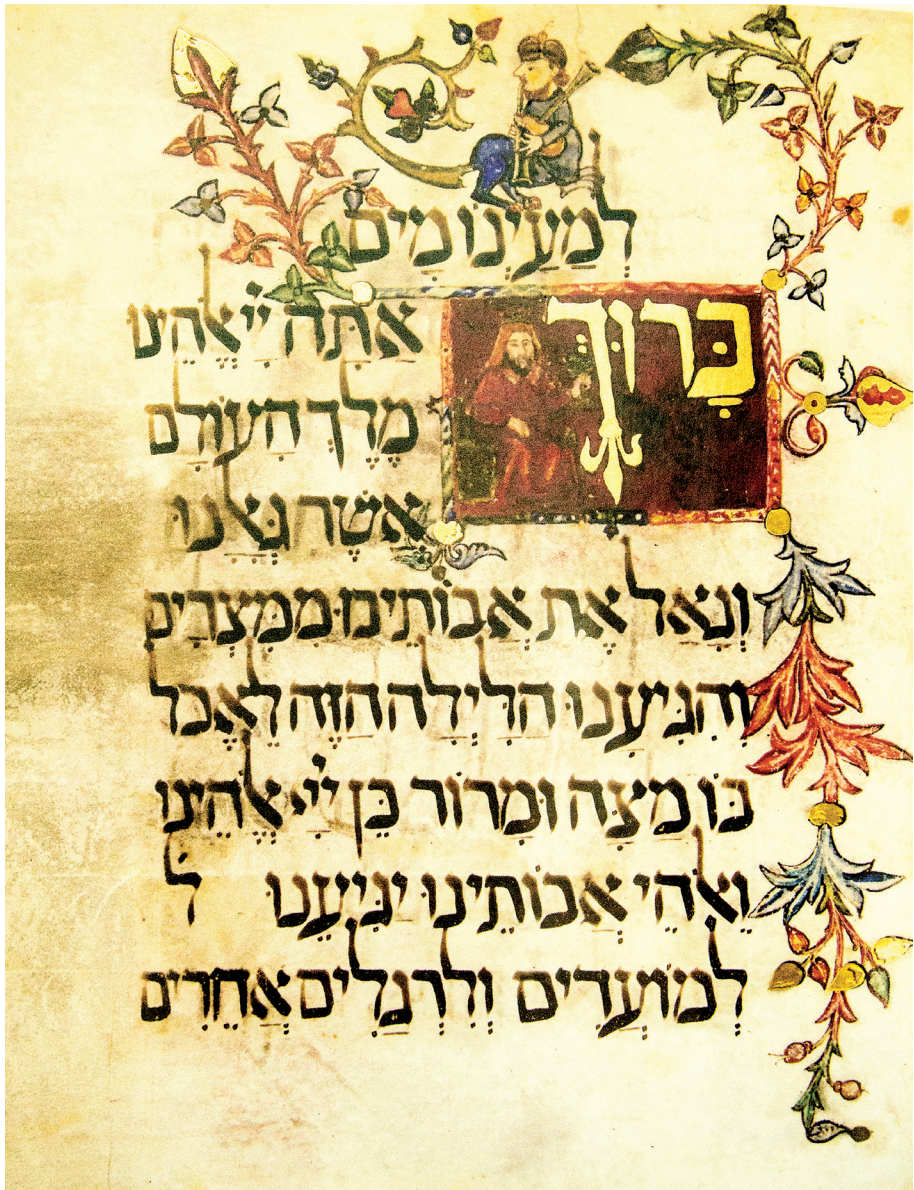 לְמַעַיְנוֹ מָיִם
בָּרוּךְ אַתָּה יְיָ אֱלֹהֵינוּ
מֶלֶךְ הָעוֹלָם
אֲשֶׁר גְּאָלָנוּ
וְגָאַל אֶת אֲבוֹתֵינוּ מִמִּצְרַיִם
וְהִגִּיעָנוּ הַלַּיְלָה הַזֶּה לֶאֱכֹל
בּוֹ מַצָּה וּמָרוֹר כֵּן יְיָ אֱלֹהֵינוּ
וֵאלֹהֵי אֲבוֹתֵינוּ יַגִּיעֵנוּ ל
לְמוֹעֲדִים וְלִרְגָלִים אֲחֵרִים